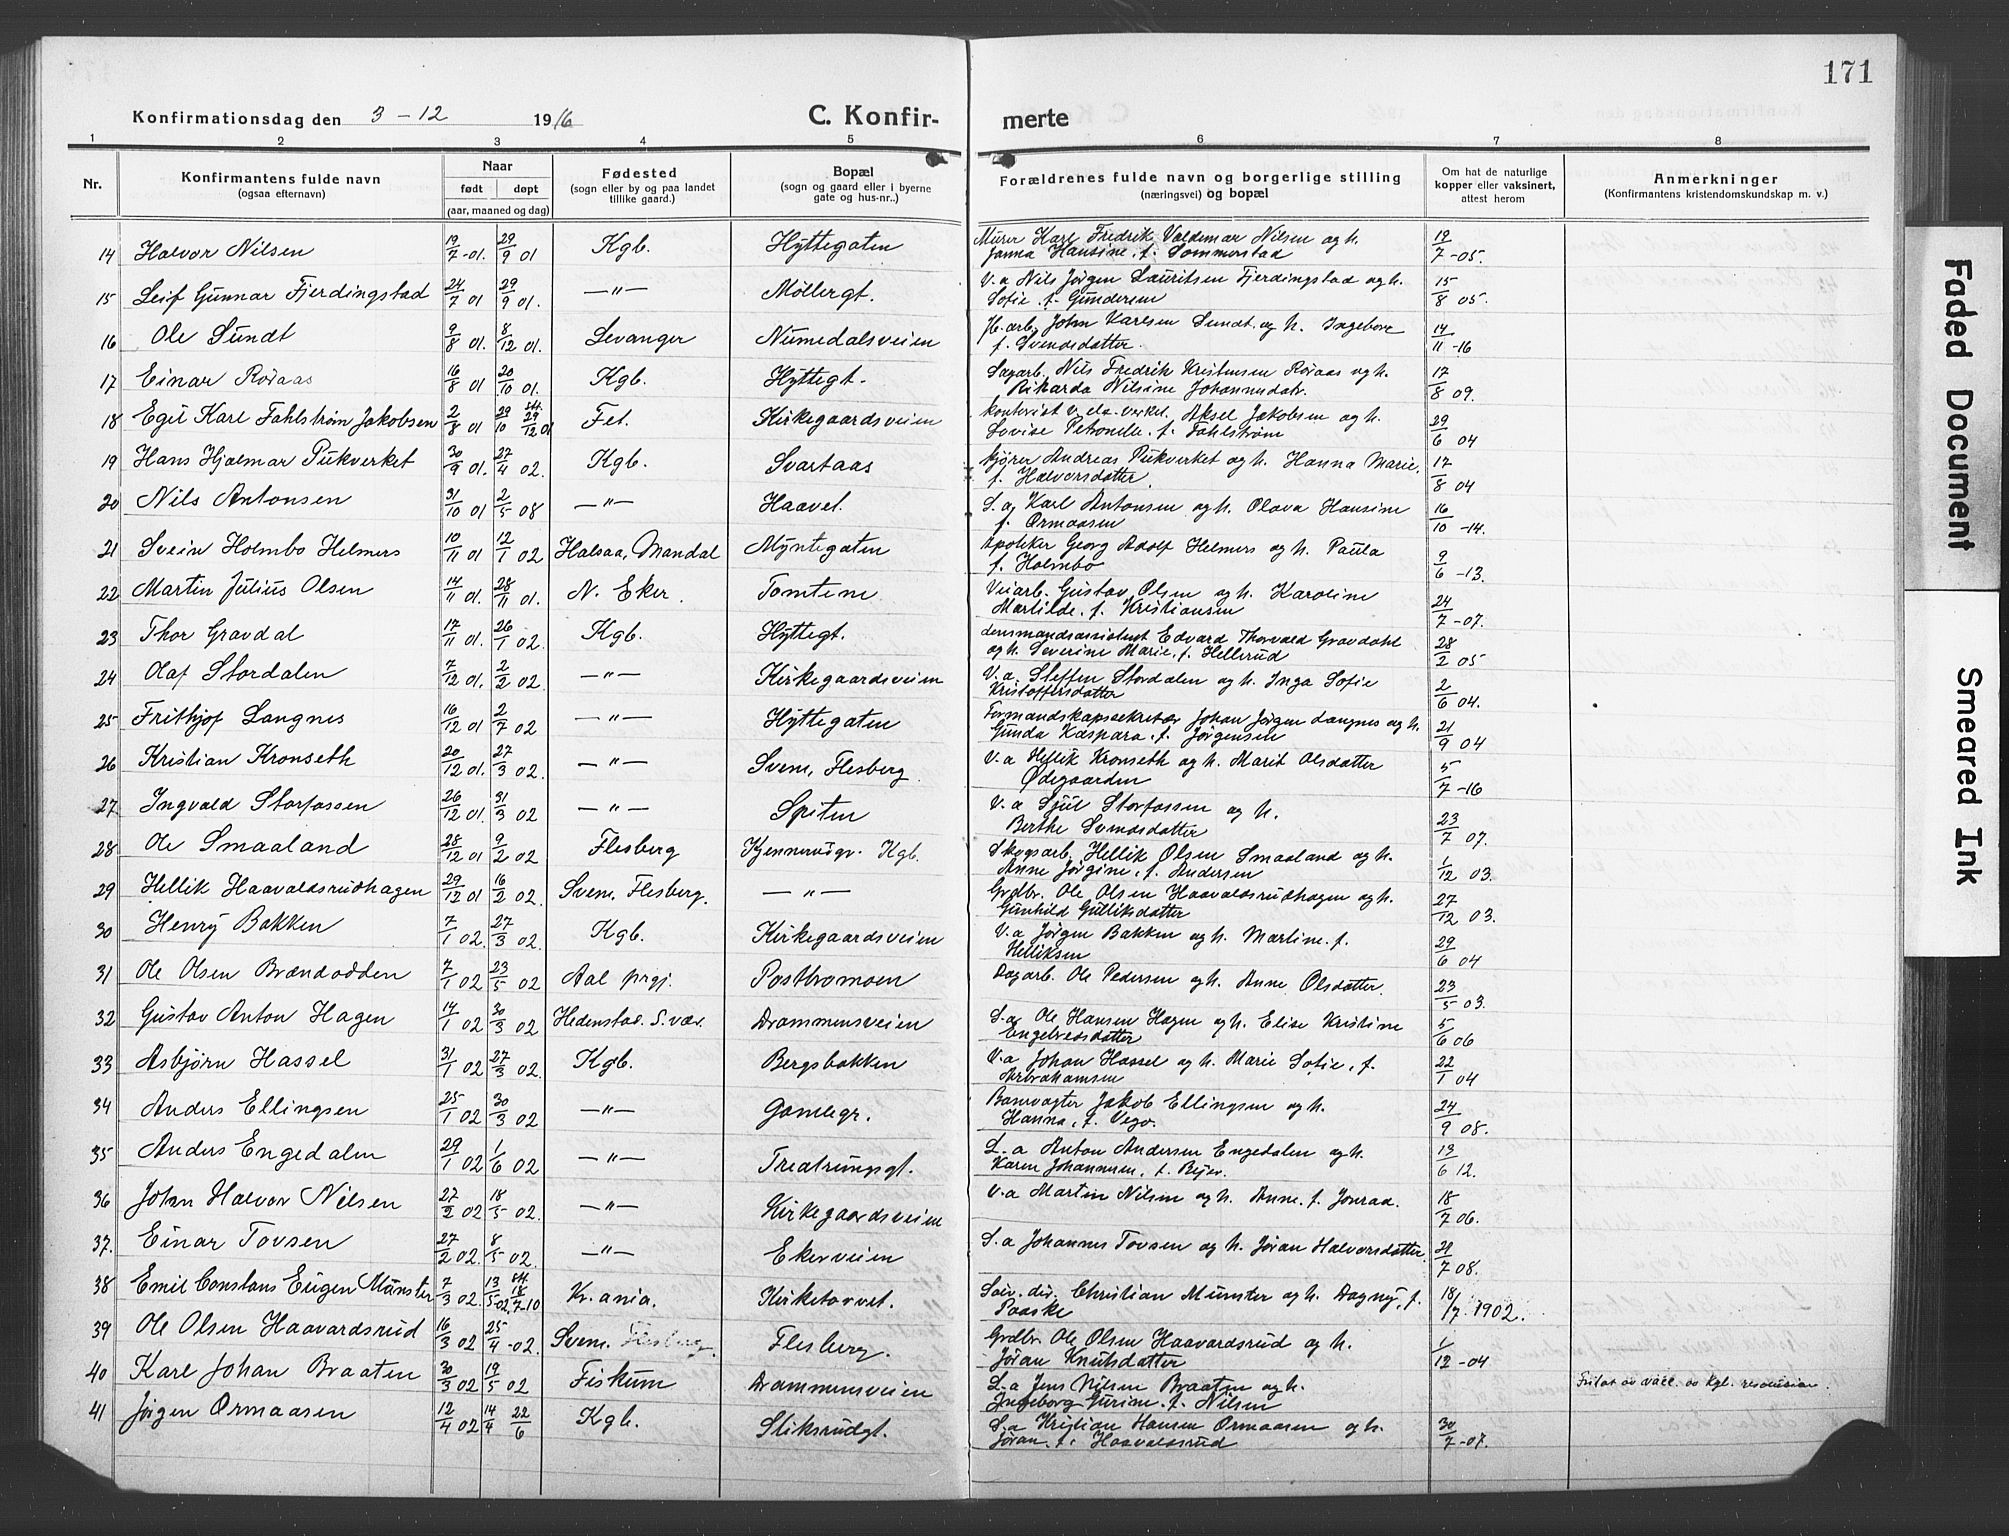 171
Konfirmationsdag den 3 - 12 1916 C. Konfir- merte
1 2 3 4 5 6 7 8
Nr.
Konfirmantens fulde navn
(ogsaa efternavn)
Naar
født døpt
(aar, maaned og dag)
Fødested
(sogn eller by og paa landet
tillike gaard.)
Bopæl
(sogn og gaard eller i byerne
gate og hus-nr..)
Forældrenes fulde navn og borgerlige stilling
(næringsvei) og bopæl
Om hat de naturlige
kopper eller vaksinert,
attest herom
Anmerkninger
(Konfirmantens kristendomskundskap m. v.)
14 Halvor Nilsen 19/7 -01. 29/9 01 Kgb. Hyttegaten Murer Karl Fredrik Valdemar Nilsen og h. 19/7 -05.
Janna Hansine, f. Sommerstad
15 Leif Gunnar Fjerdingstad 24/7 01 29/9 01. —"— Møllergt. V.a Nils Jørgen Lauritsen Fjerdingstad og h. 15/8 05.
Sofie f. Gundersen
16 Ole Sundt 9/8 01. 8/12 01. Levanger Numedalsveien John Karlsen Sundt og h. Ingeborg 14/11 -16
f. Svendsdatter.
17 Einar Roraas 16/8 01 20/10 01. Kgb. Hyttegt. Sagarb. Nils Fredrik Kristensen Roraas og h. 17/8 09.
Rikarda Nilsine Johannesdatr.
18 Egil Karl Fahlstrøm Jakobsen 2/8 01 29/10 st. 29/12 01 Fet. Kirkegaardsveien Kontorist v. ela. verket. Aksel Jakobsen og h. 29/6 04
Lovise Petronelle. f. Fahlstrøm
19 Hans Hjalmar Pukverket 30/9 01. 27/4 02. Kgb. Svartaas Kjører Andreas Pukverket og h. Hanna Marie, 17/8 04
f. Halvorsdatter.
20 Nils Antonsen 31/10 01 2/5 08 —"— Haavet. S.a. Karl Antonsen og h. Olava Hansine 16/10 -14.
f. Ormaasen
21 Svein Holmbo Helmers 10/11 01 12/1 02 Halsaa, Mandal Myntegaten Apoteker Georg Adolf Helmers og h. Paula 9/6 -13.
f. Holmbo
22 Martin Julius Olsen 14/11 01. 28/11 01. N. Eker. Tomtene Veiarb. Gustav Olsen og h. Karoline 24/7 -07.
Matilde. f. Kristiansen
23 Thor Gravdal 17/11 01. 26/1 02 Kgb. Hyttegt. Lensmandsassistent Edvard Thorvald Gravdahl 28/2 05
og h. Severine Marie, f. Hellerud
24 Olaf Stordalen 7/12 01. 2/2 02 —"— Kirkegaardsveien V.a. Steffen Stordalen og h. Inga Sofie 2/6 04.
Kristoffersdatter
25 Frithjof Langnes 16/12 01 2/7 02 —"— Hyttegaten Formandskapssekretær Johan Jørgen Langnes og h. 21/9 04
Gunda Kaspara. f. Jørgensen
26 Kristian Kronseth 20/12 01. 27/3 02. —"— Svene, Flesberg. V.a Hellik Kronseth og h. Marit Olsdatter 5/7 -16
Ødegaarden
27. Ingvald Storfossen 26/12 01. 31/3 02 —"— Spiten V.a Sjul Storfossen og h. 23/7 07.
Berthe Svendsdatter
28 Ole Smaaland 28/12 01 9/2 02 Flesberg Kjennerudgr. Kgb. Skogsarb. Hellik Olsen Smaaland og h. 1/12 03.
Anne Jørgine, f. Andersen
29 Hellik Haavaldsrudhagen 29/12 01 16/2 02. Svene, Flesberg. —"— Grdbr. Ole Olsen Haavaldsrudhagen og h. 27/12 03.
Gunhild Gulliksdatter
30 Henry Bakken 7/1 02. 27/3 02. Kgb. Kirkegaardsveien V.a Jørgen Bakken og h. Martine. f. 29/6 04
Helliksen
31 Ole Olsen Brændodden 7/1 02 23/5 02 Aal prgj. Postbromoen Dagarb. Ole Pedersen og h. Anne Olsdatter. 23/5 03.
32 Gustav Anton Hagen 14/1 02 30/3 02 Hedenstad. S.vær. Drammensveien S.a Ole Hansen Hagen og h. Elise Kristine 5/6 06
Engebredsdatter
33 Asbjørn Hassel 31/1 02 27/3 02. Kgb. Bergsbakken V.a Johan Hassel og h. Marie Sofie, f. 22/1 04
Arbrahamsen
34 Anders Ellingsen 25/1 02 30/3 02 —"— Gamlegr. Banevogter Jakob Ellingsen og h. 24/9 08.
Hanna, f. Vego.
35 Anders Engedalen 29/1 02 1/6 02 —"— Treatrungsgt. L.a Anton Andersen Engedalen og h. 13/6 12.
Karen Johannesen, f. Bejer.
36 Johan Halvor Nilsen 27/2 02 18/5 02. —"— Kirkegaardsveien V.a Martin Nilsen og h. Anne. f. Jonraa. 18/7 06.
37. Einar Tovsen 27/2 02. 8/5 02. —"— Ekerveien S.a Johannes Tovsen og h. Jøran Halvorsdatter 21/7 08.
38 Emil Constans Eugen Münster 7/3 02. 13/5 02. st. 18/7-10 Kr.ania. Kirketorvet. Sølv. dir. Christian Münster og h. Dagny, f. 18/7 1902.
Paaske
39 Ole Olsen Haavardsrud 16/3 02 25/4 -02. Svene. Flesberg. Flesberg. Grdbr. Ole Olsen Haavardsrud og h. 1/12 -04
Jøran Knutsdatter
40 Karl Johan Braaten 30/3 02 19/5 02 Fiskum Drammensveien L.a Jens Nilsen Braaten og h. Fritat av vacc. av Kgl. resolusion.
Ingeborg Gurine. f. Nilsen
41 Jørgen Ormaasen 12/4 02 14/4 22/6 Kgb. Sliksrudgt. S.a Kristian Hansen Ormaasen og h. 30/7 -07.
Jøran. f. Haavaldsrud
Faded Document
Smeared Ink